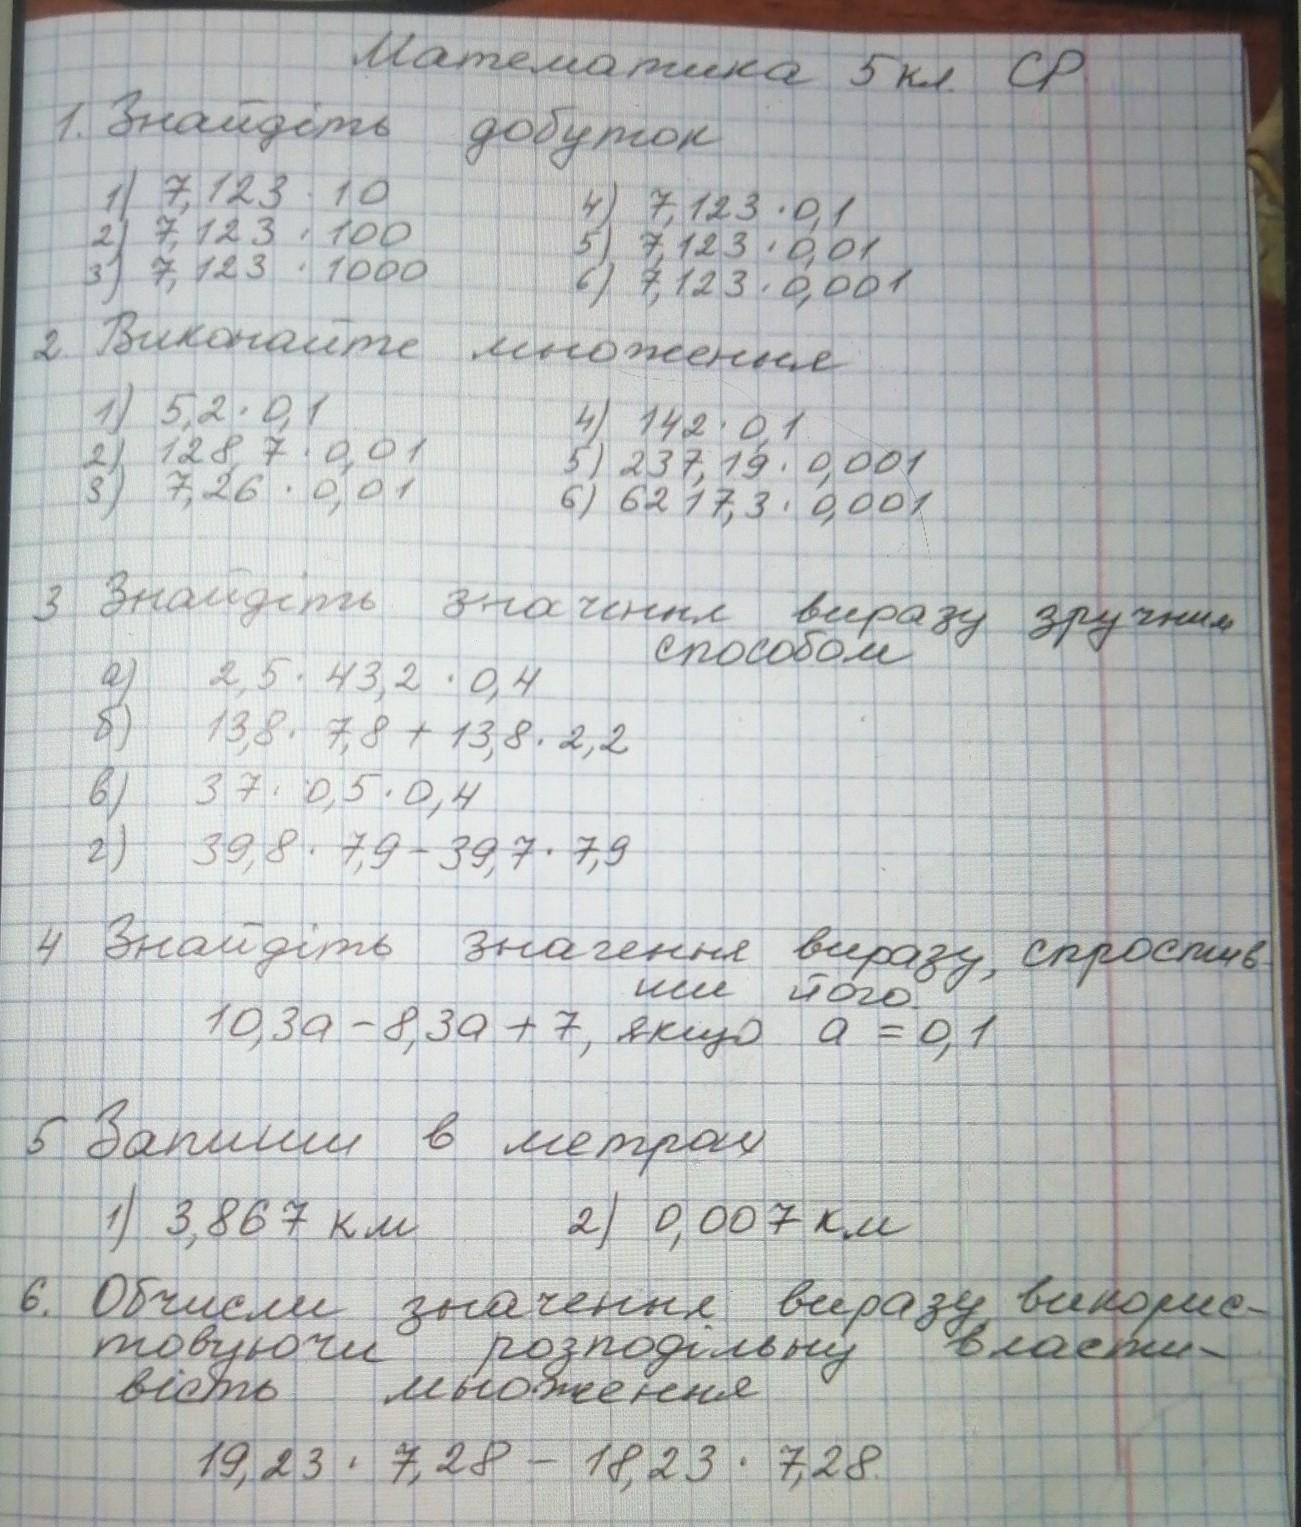 Математика 5 кл. СР
1. Знайдіть добуток
1) 7,123 · 10
4) 7,123 · 0,1
2) 7,123 · 100
5) 7,123 · 0,01
3) 7,123 · 1000
6) 7,123 · 0,001
2 Виконайте множення
1) 5,2 · 0,1
4) 142 · 0,1
2) 128,7 · 0,01
5) 237,19 · 0,001
3) 7,26 · 0,01
6) 6217,3 · 0,001
3 Знайдіть значення виразу зручним
способом
а) 2,5 · 43,2 · 0,4
б) 13,8 · 7,8 + 13,8 · 2,2
в) 37 · 0,5 · 0,4
г) 39,8 · 7,9 - 39,7 · 7,9
4 Знайдіть значення виразу, спростив-
ши його
10,3а - 8,3а + 7, якщо а = 0,1
5 Запиши в метрах
1) 3,867 км 2) 0,007 км
6. Обчисли значення виразу викорис-
товуючи розподільну власти-
вість множення
19,23 · 7,28 - 18,23 · 7,28.